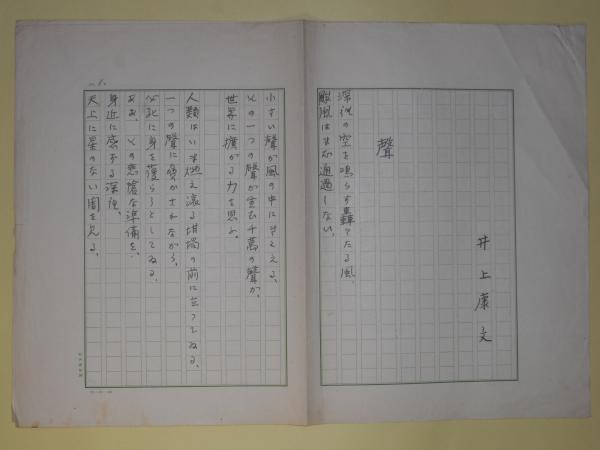 聲
井上康文
深夜の空を鳴らす轟々たる風、
颱風はまだ通過しない。
小さい聲が風の中にきこえる、
その一つの聲が幾千萬の聲が、
世界に擴がる力を思ふ。
人類はいま燃え滾る坩堝の前に立つてゐる、
一つの聲に脅かされながら、
必死に身を護らうとしてゐる、
ああ、その悲愴な準備を、
身近に感ずる深夜、
天上に星のない闇を見る。